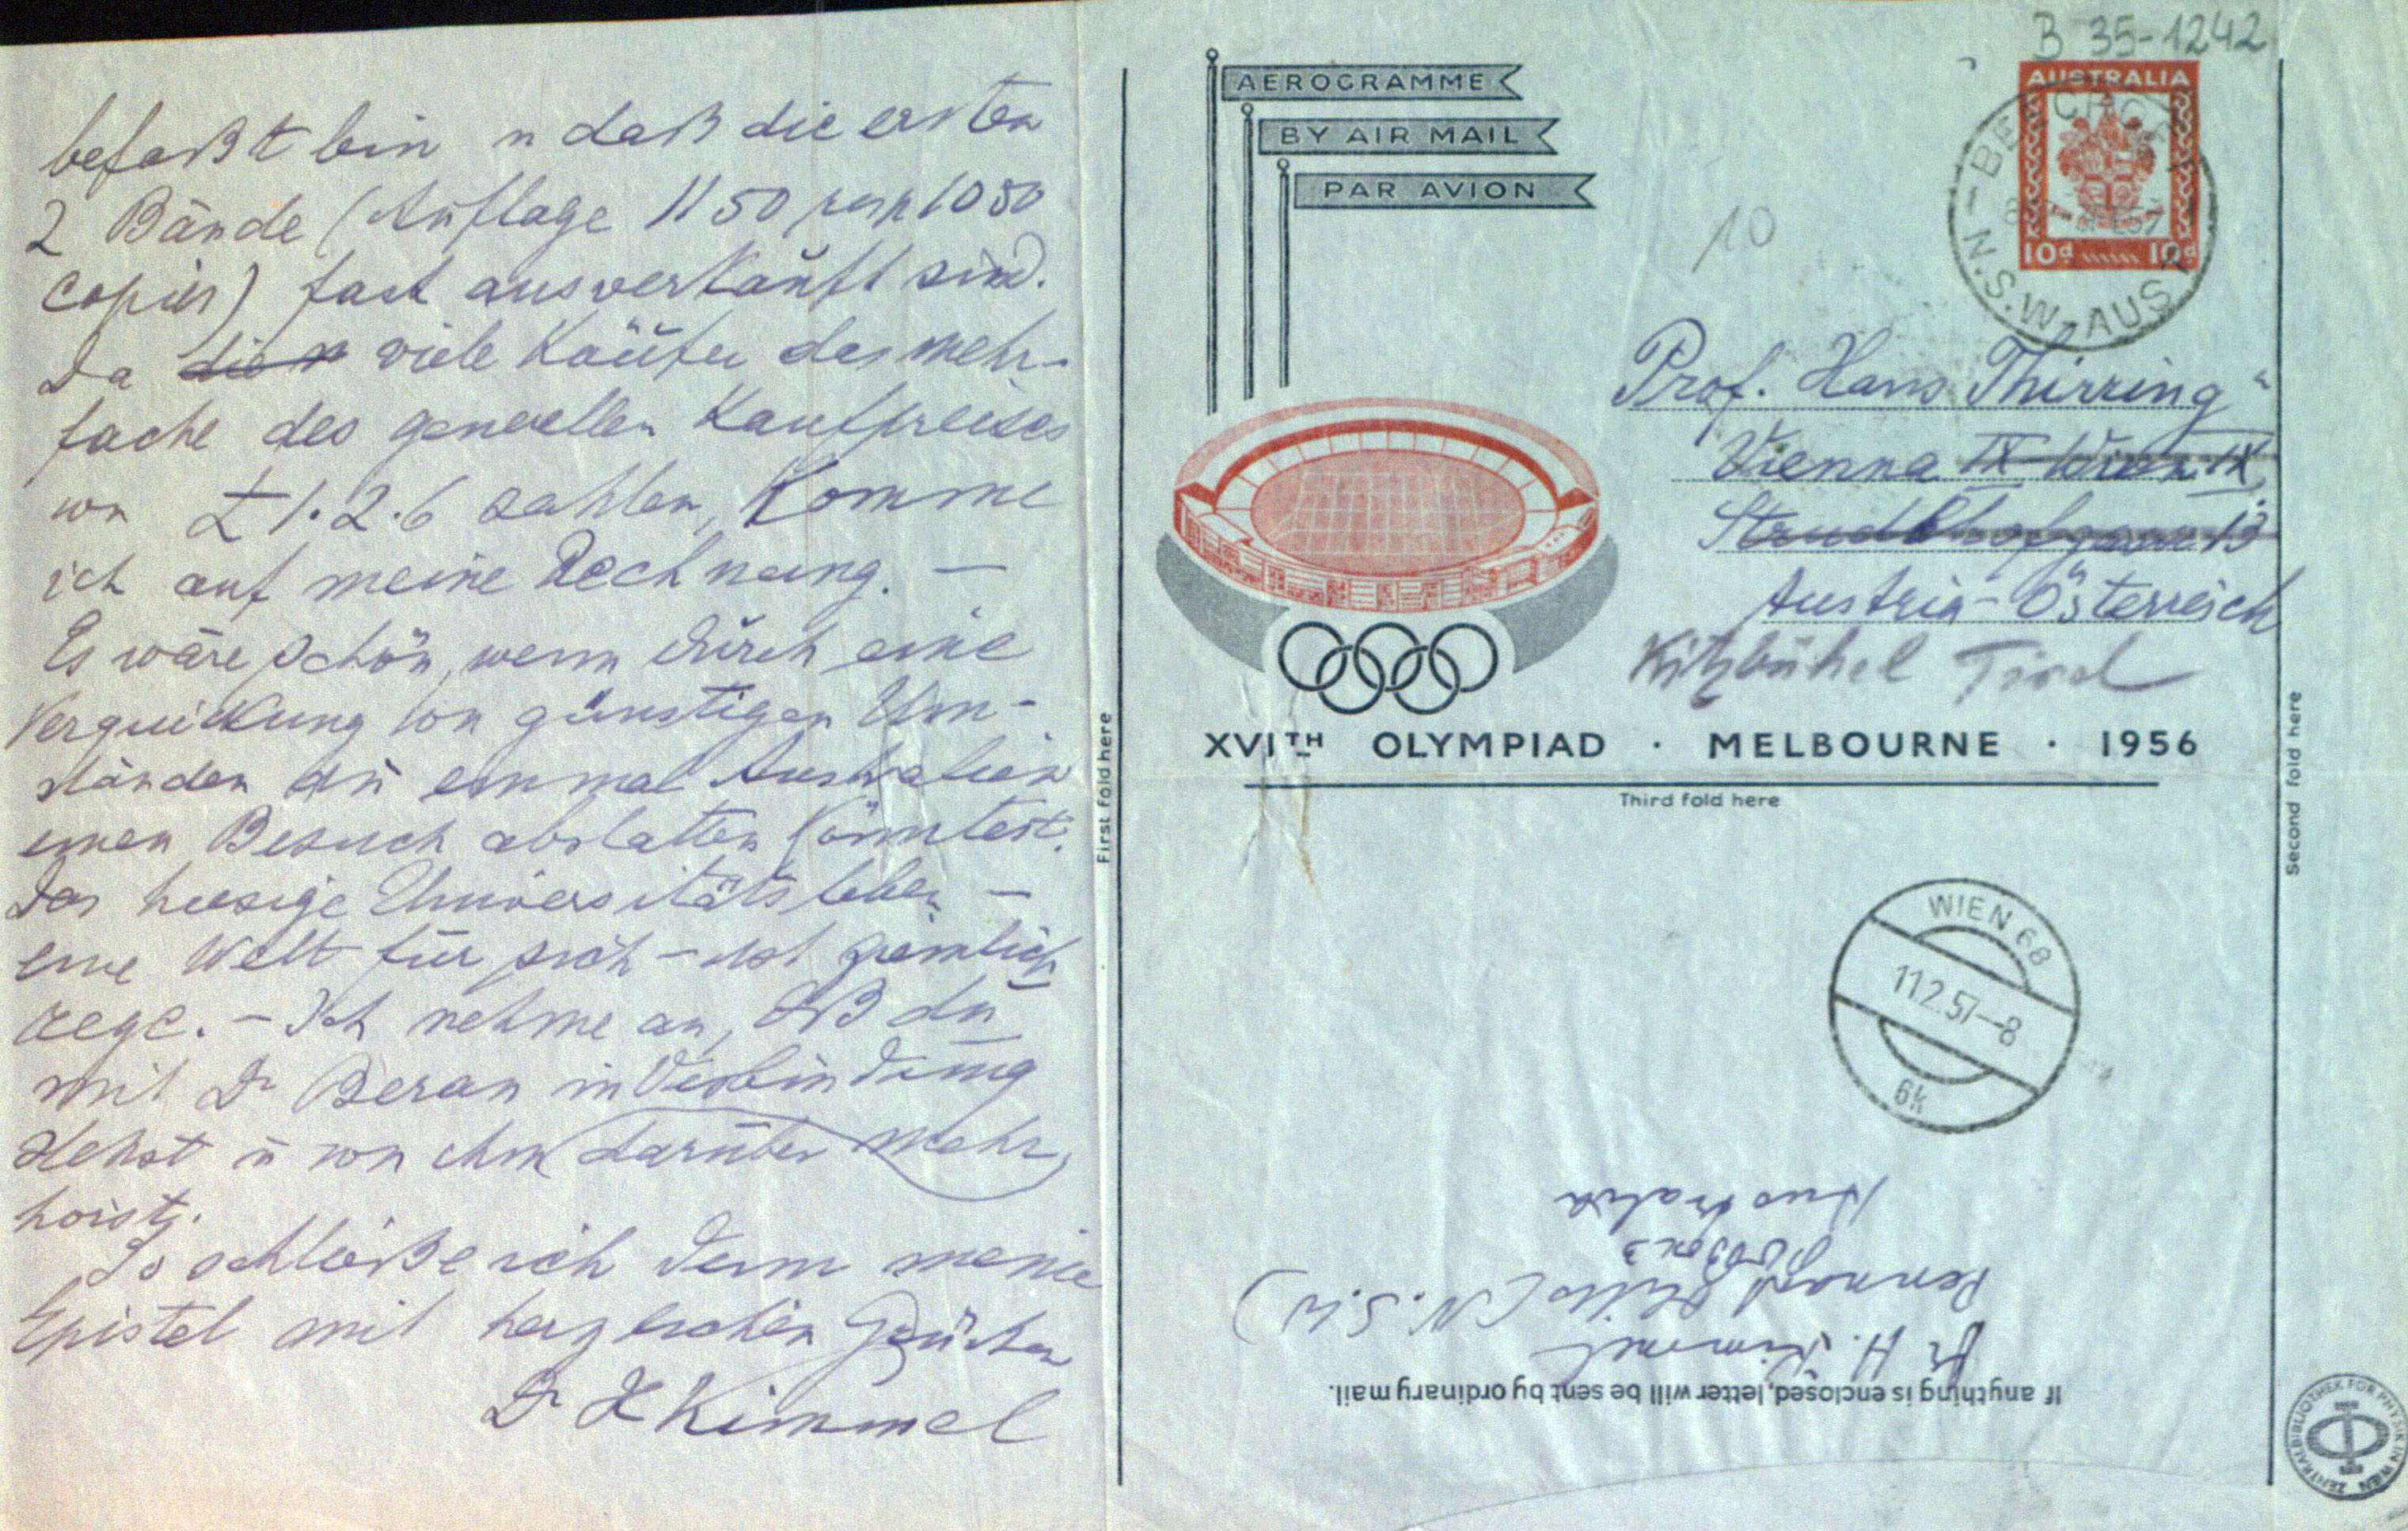 befaßt bin u daß die ersten
2 Bände (Auflage 1150 resp 1050
copies) fast ausverkauft sind.
Da viele Käufer das mehr-
fache des generellen Kaufpreises
von £ 1.2.6 zahlen, komme
ich auf meine Rechnung. —
Es wäre schön, wenn durch eine
Verquickung von günstigen Um-
ständen du einmal Australien
einen Besuch abstatten könntest.
Das hiesige Universitätsleben —
eine Welt für sich — ist ziemlich
rege. — Ich nehme an, daß du
mit Dr Beran in Verbindung
stehst u von ihm darüber mehr
hörst.
So schließe ich denn meine
Epistel mit herzlichen Grüßen
Dr H Kimmel
First fold here
B 35-1242
AEROGRAMME
BY AIR MAIL
PAR AVION
10
AUSTRALIA
10d 10d
N.S.W-AUST
Prof. Hans Thirring
Vienna IX Wien IX
Strudlhofgasse 13
Austria - Österreich
Kitzbühel Tirol
XVITH OLYMPIAD · MELBOURNE · 1956
Third fold here
Second fold here
WIEN 68
11.2.57-8
6k
If anything is enclosed, letter will be sent by ordinary mail.
Dr H. Kimmel
Pennant Hills (N.S.W)
Australia
ZENTRALBIBLIOTHEK FÜR PHYSIK IN WIEN